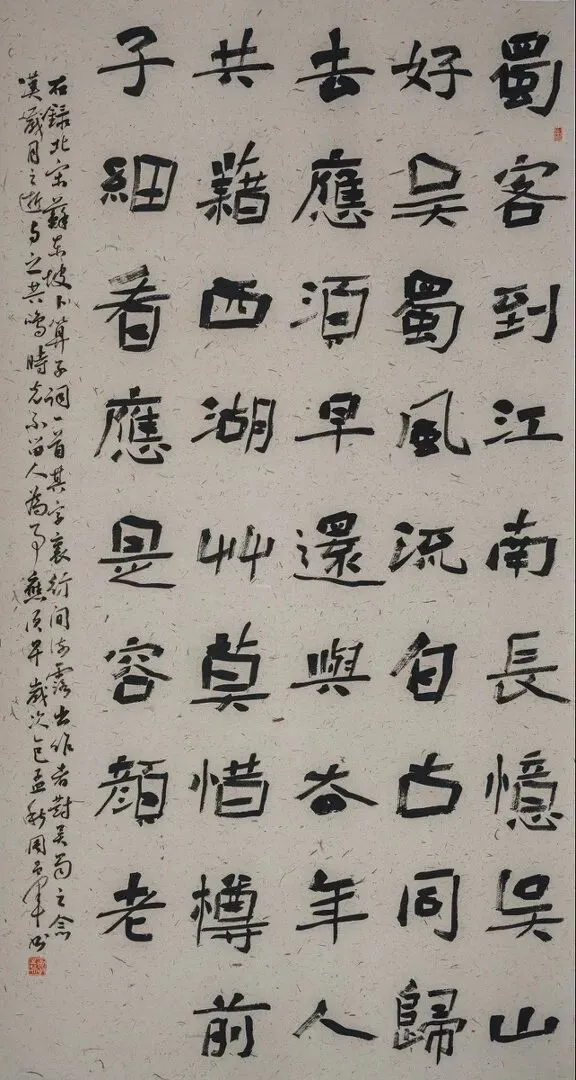 蜀客到江南長憶吳山
好吳蜀風流自古同歸
去應須早還與去年人
共藉西湖艸莫惜樽前
子細看應是容顏老
右錄北宋蘇東坡卜算子詞一首其字裏行間流露出作者對吳蜀之念
嘆歲月之逝与之共鳴時光不留人為事應須早歲次乙巳孟秋周軍书